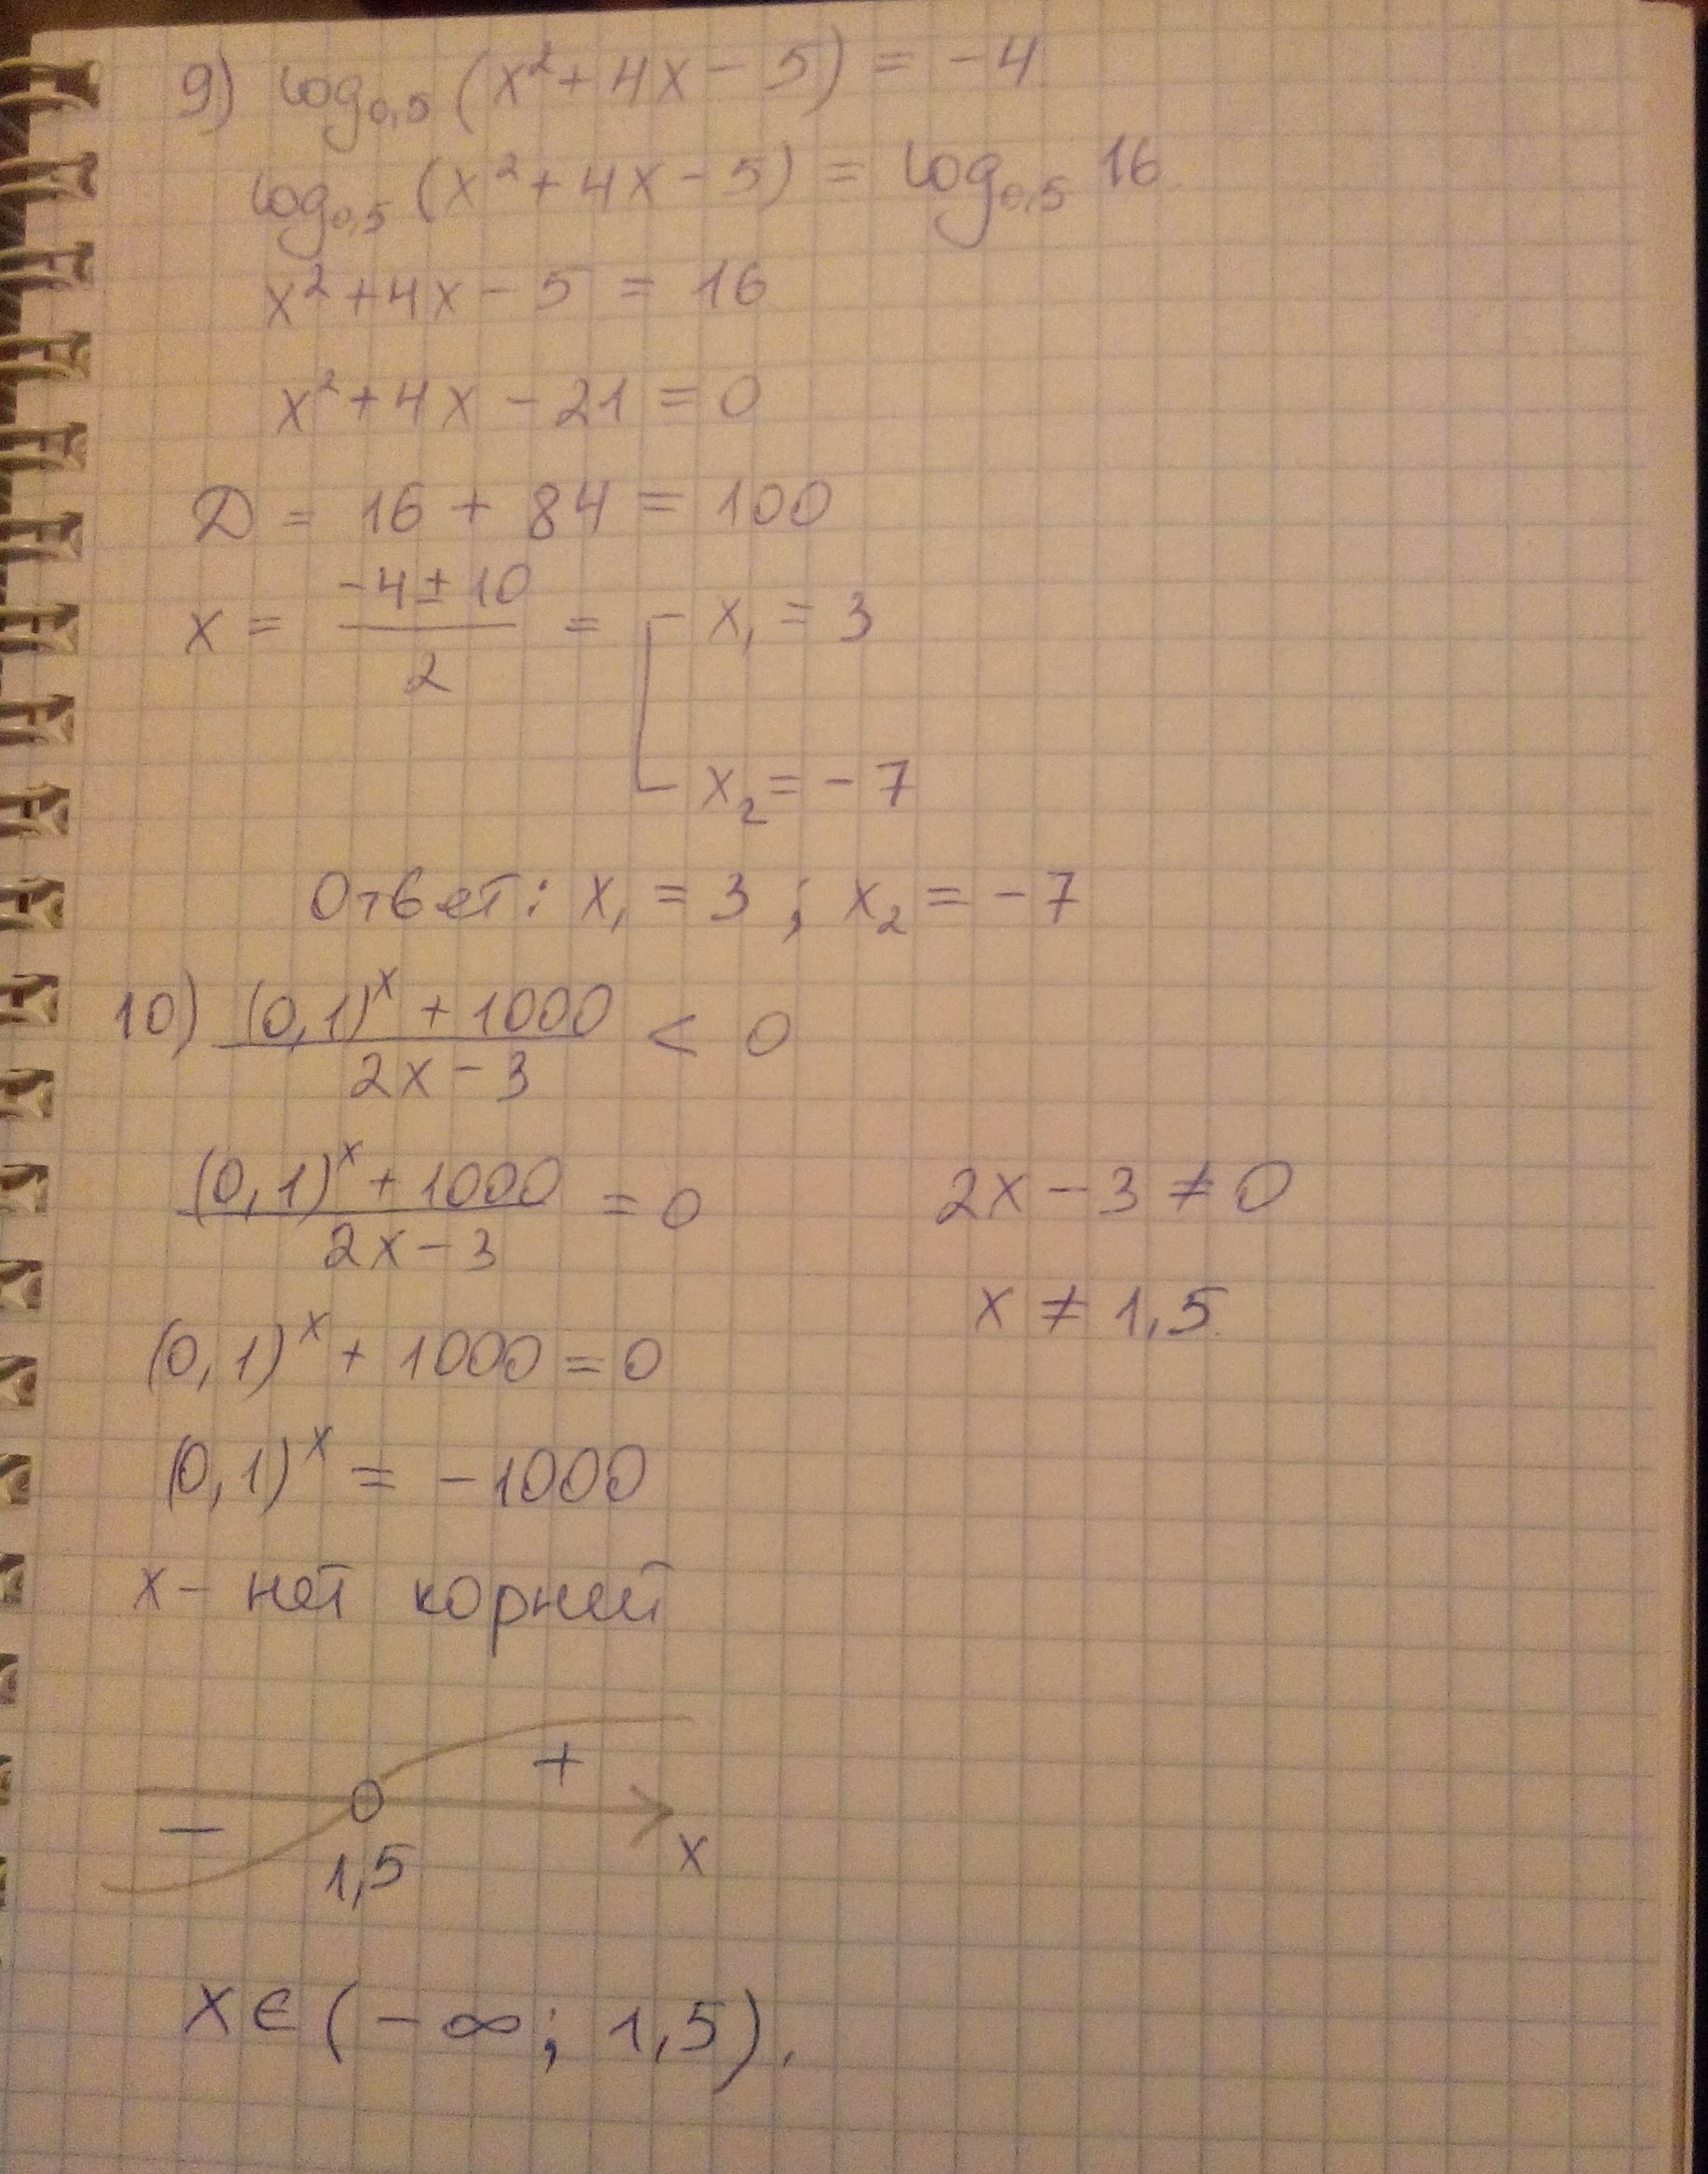 9) log₀,₅ (x² + 4x - 5) = -4
log₀,₅ (x² + 4x - 5) = log₀,₅ 16
x² + 4x - 5 = 16
x² + 4x - 21 = 0
D = 16 + 84 = 100
x = (-4 ± 10)/2 = [ x₁ = 3
x₂ = -7
Ответ: x₁ = 3 ; x₂ = -7
10) ((0,1)ˣ + 1000)/(2x - 3) < 0
((0,1)ˣ + 1000)/(2x - 3) = 0 2x - 3 ≠ 0
x ≠ 1,5
(0,1)ˣ + 1000 = 0
(0,1)ˣ = -1000
x - нет корней
+
-
1,5 x
x ∈ (-∞; 1,5).